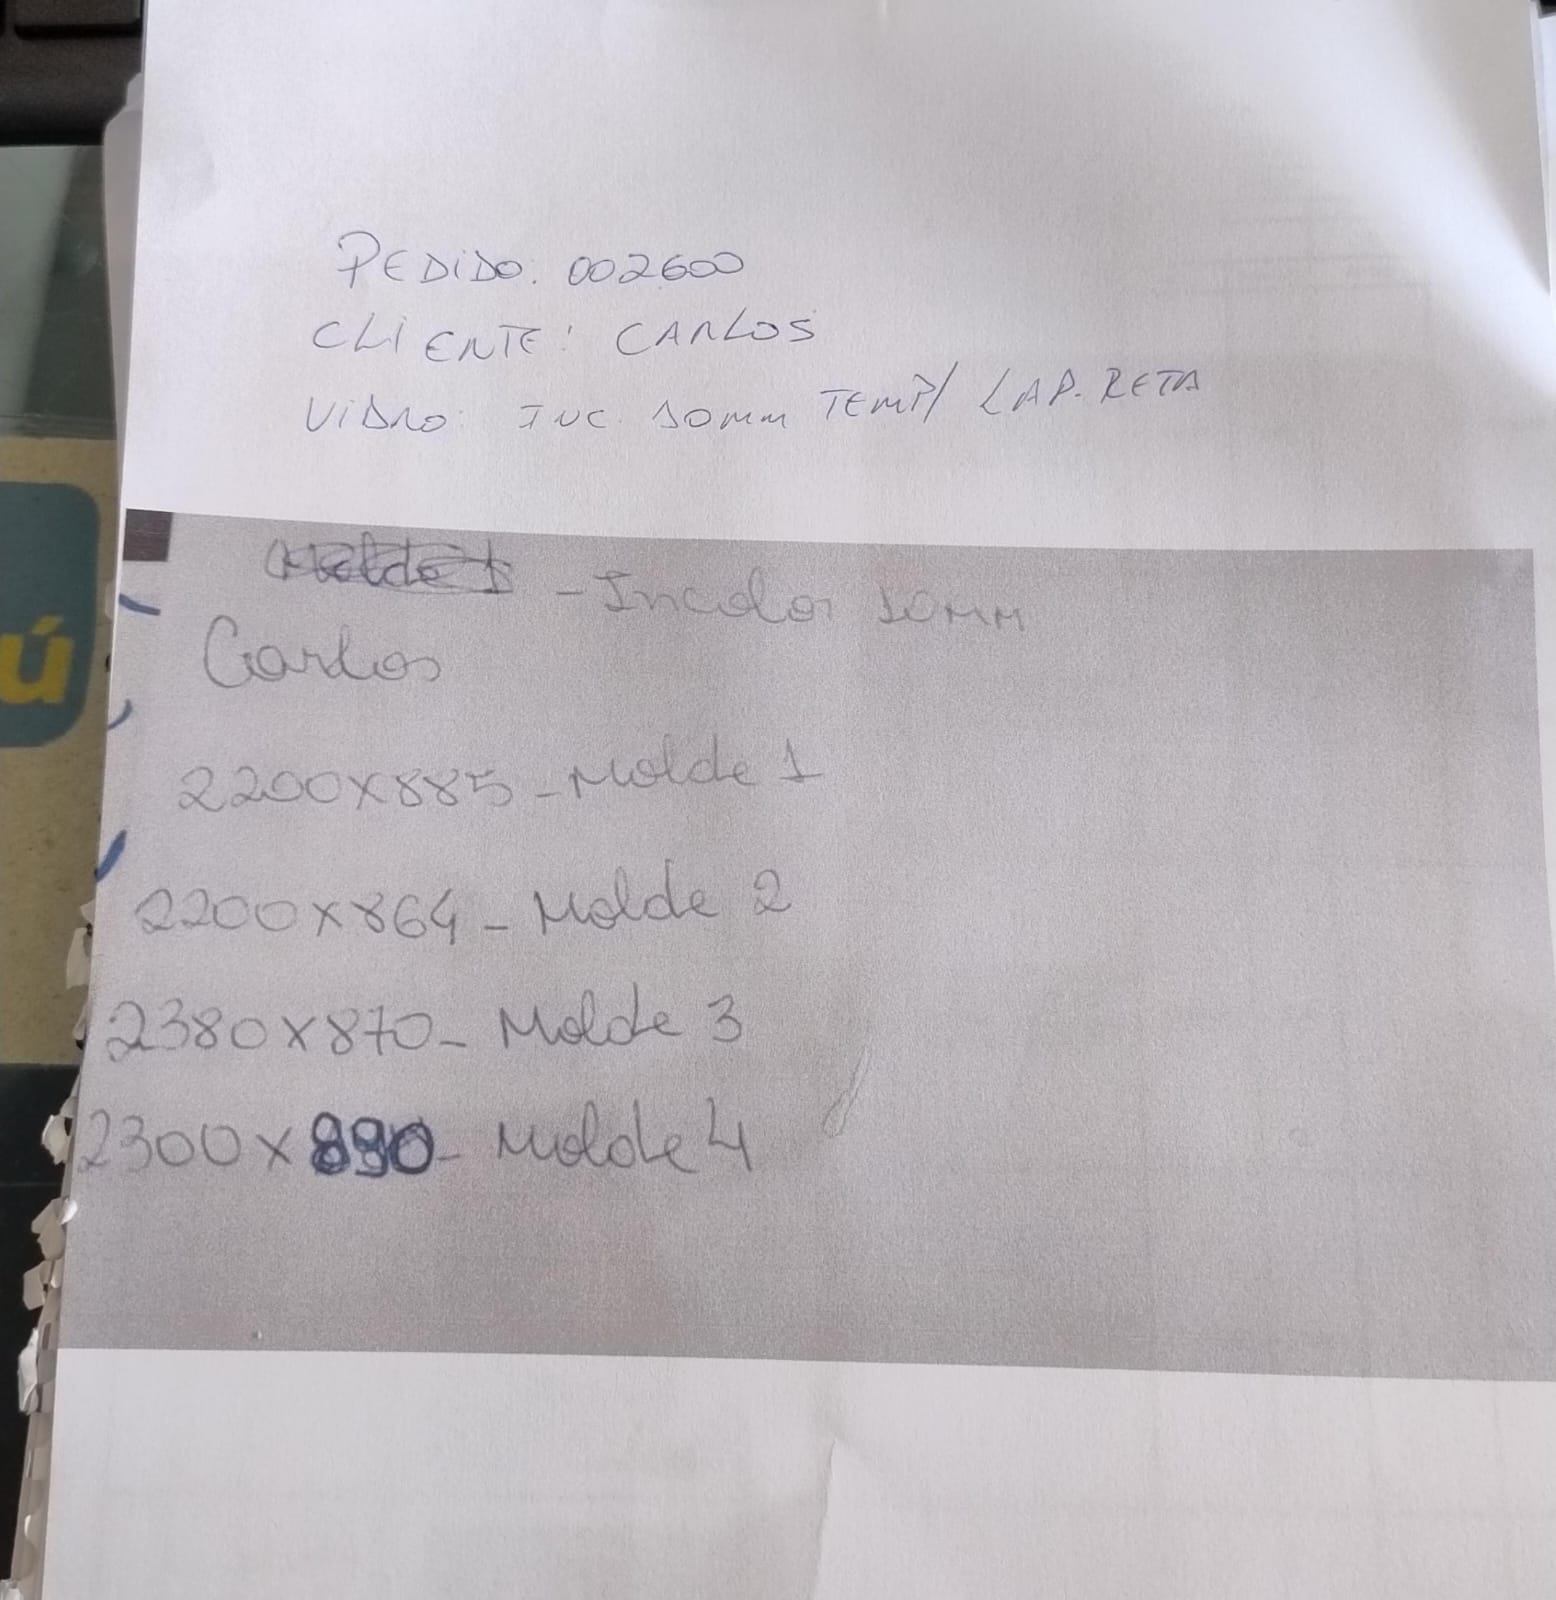 PEDIDO: 002600
CLIENTE: CARLOS
VIDRO: INC. 10MM TEMP/ LAP. RETA
- Incolor 10MM
Carlos
2200x885 - Molde 1
2200x864 - Molde 2
2380x870 - Molde 3
2300x890 - Molde 4
ú